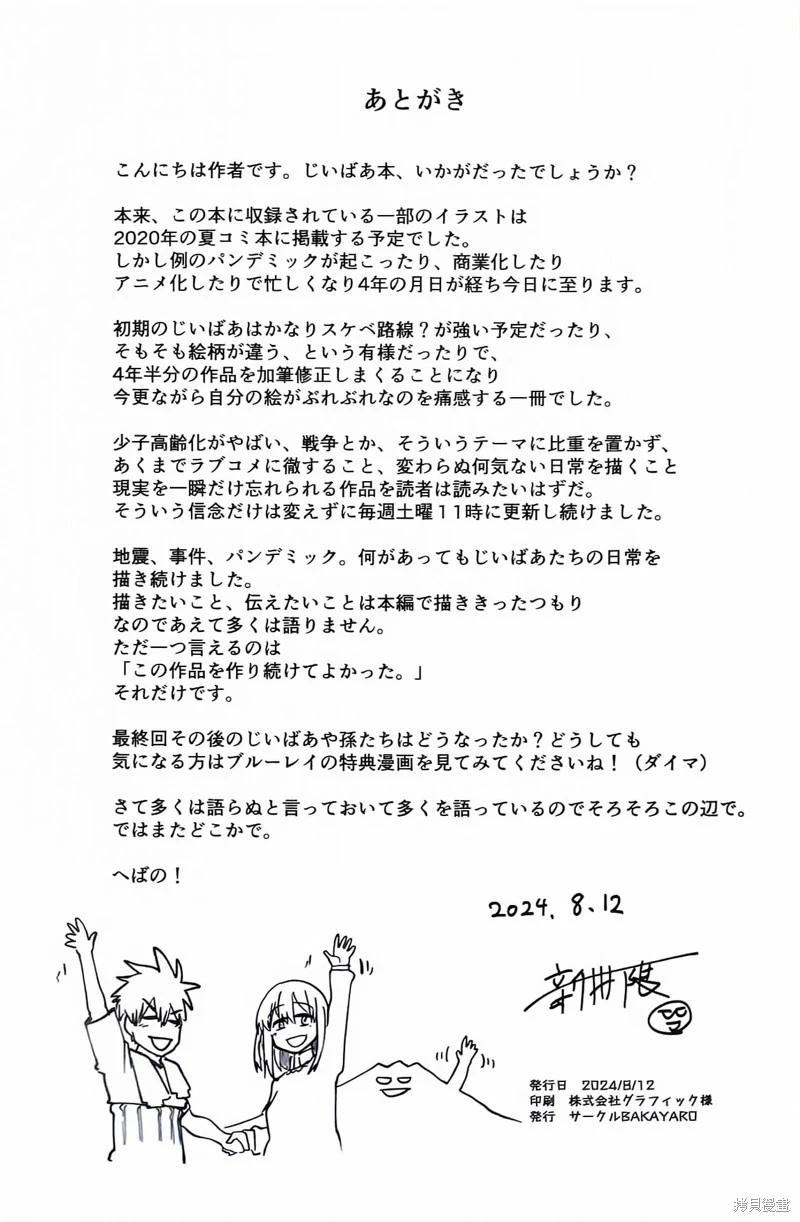 あとがき
こんにちは作者です。じいばあ本、いかがだったでしょうか？
本来、この本に収録されている一部のイラストは
2020年の夏コミ本に掲載する予定でした。
しかし例のパンデミックが起こったり、商業化したり
アニメ化したりで忙しくなり4年の月日が経ち今日に至ります。
初期のじいばあはかなりスケベ路線？が強い予定だったり、
そもそも絵柄が違う、という有様だったりで、
4年半分の作品を加筆修正しまくることになり
今更ながら自分の絵がぶれぶれなのを痛感する一冊でした。
少子高齢化がやばい、戦争とか、そういうテーマに比重を置かず、
あくまでラブコメに徹すること、変わらぬ何気ない日常を描くこと
現実を一瞬だけ忘れられる作品を読者は読みたいはずだ。
そういう信念だけは変えずに毎週土曜１１時に更新し続けました。
地震、事件、パンデミック。何があってもじいばあたちの日常を
描き続けました。
描きたいこと、伝えたいことは本編で描ききったつもり
なのであえて多くは語りません。
ただ一つ言えるのは
「この作品を作り続けてよかった。」
それだけです。
最終回その後のじいばあや孫たちはどうなったか？どうしても
気になる方はブルーレイの特典漫画を見てみてくださいね！（ダイマ）
さて多くは語らぬと言っておいて多くを語っているのでそろそろこの辺で。
ではまたどこかで。
へばの！
2024. 8. 12
新井隈
発行日　2024/8/12
印刷　株式会社グラフィック様
発行　サークルBAKAYARO
拷貝漫畫